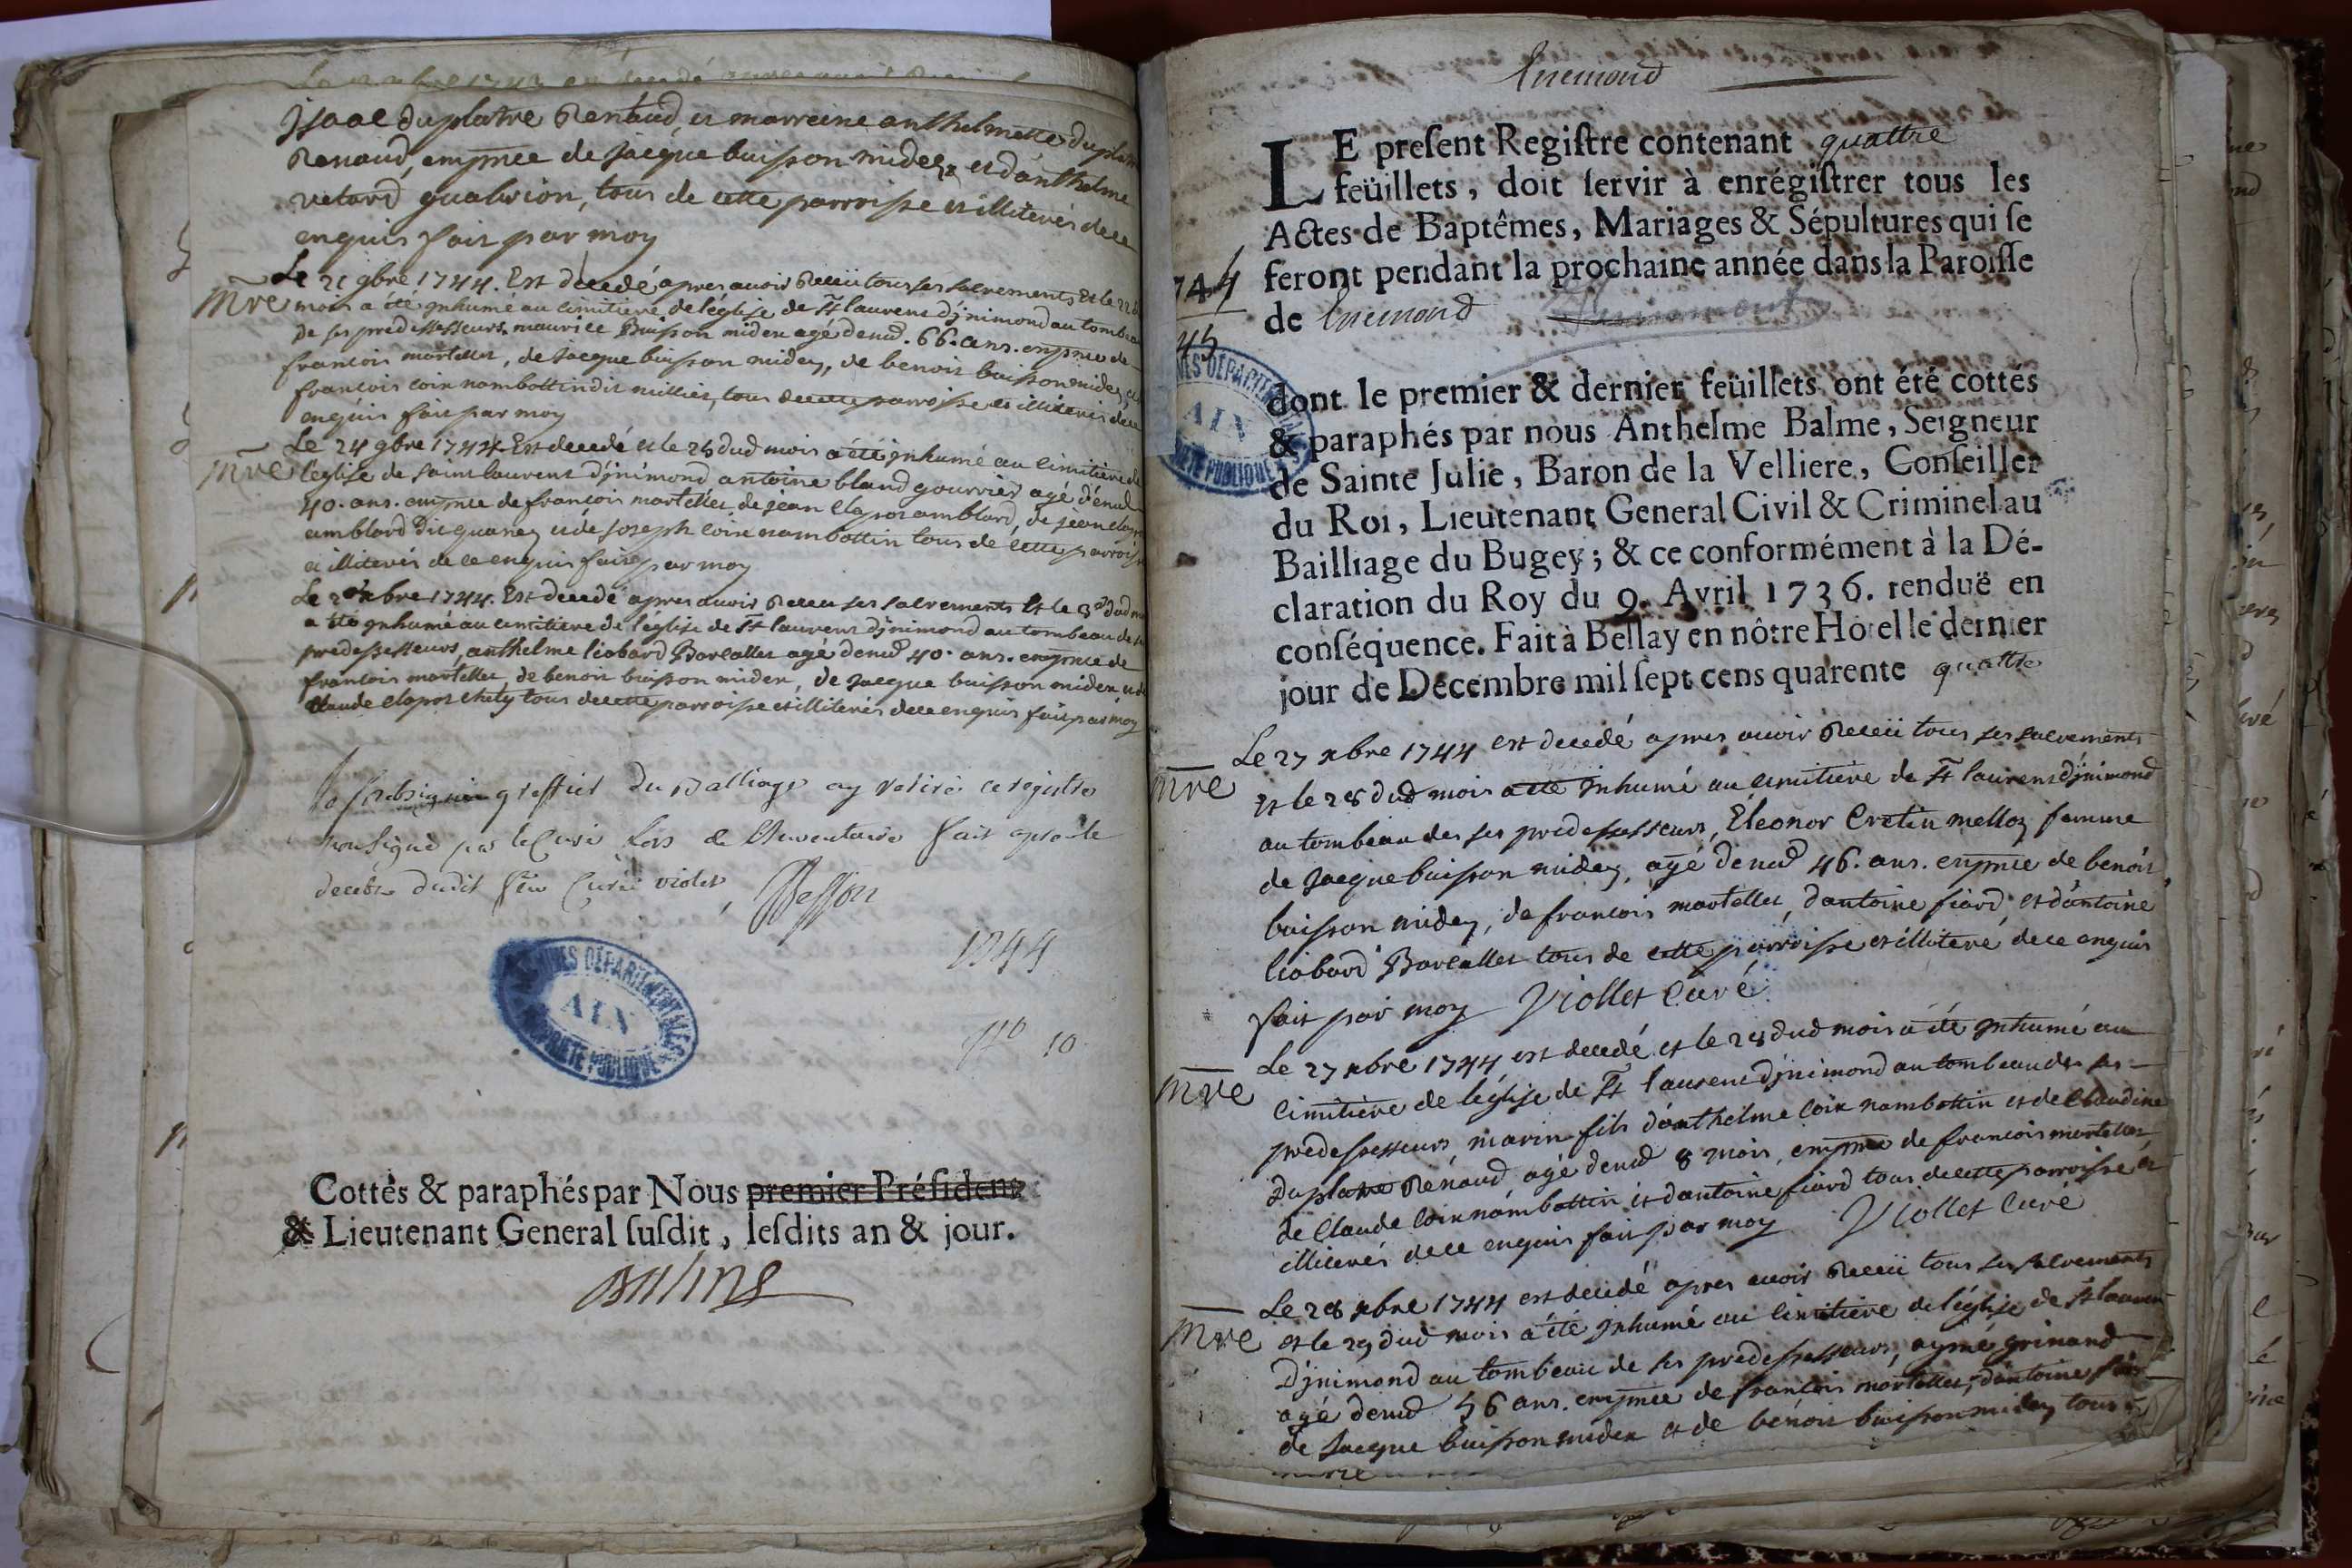 Isaac duplatre Renaud, et marreine anthelmette duplatre
Renaud, en pnce de jacque buisson midex et d'anthelme
retord gualision, tous de cette parroisse et illiterés de ce
enquis fait par moy
Mre
Le 21 9bre 1744. Est decedé apres avoir Receü tous ses sacrements Et le 22 d
mois a été jnhumé au cimitiere de l'église de St laurent d'jnimond au tombeau
de ses predessesseurs, maurice Buisson midex agé denvd. 66. ans. en pnce de
francois martellet, de Jacque buisson midex, de benoit buisson midex, et
francois loix nambottin dit millier, tous de cette parroisse et illiterés de ce
enquis fait par moy
Mre
Le 24 9bre 1744. Est decedé et le 25 dud mois a été jnhumé au cimitiere de
l'église de saint laurent d'jnimond antoine bland gourrier agé d'envd
40. ans. en pnce de francois martellet, de jean clapot amblard, de jean clapot
amblard dit quaney et de Joseph loix nambottin tous de cette parroisse
et illiterés de ce enquis fait par moy
Le 2e xbre 1744. Est decedé apres avoir Receu ses sacrements Et le 3e dud m
a été jnhumé au cimitiere de l'église de St laurent d'jnimond au tombeau de ses
predessesseurs, anthelme liobard Barcallet agé denvd 40. ans. en pnce de
francois martellet, de benoit buisson midex, de Jacque buisson midex et de
Claude clapot chaty tous de cette parroisse et illiterés de ce enquis fait par moy
Je soubsigné greffier du Balliage ay retiré ce registre
non signé par le Curé lors de l'Inventaire fait apres le
decebz dudit feu Curé violet, Besson
1744
No 10
ARCHIVES DÉPARTEMENTALES
AIN
PROPRIÉTÉ PUBLIQUE
Cottés & paraphés par Nous premier Présidens
& Lieutenant General susdit, lesdits an & jour.
Balme
Inemond
LE present Registre contenant quattre
feüillets, doit servir à enrégistrer tous les
Actes de Baptêmes, Mariages & Sépultures qui se
feront pendant la prochaine année dans la Paroisse
de Inemond
744
45
ARCHIVES DÉPARTEMENTALES
AIN
PROPRIÉTÉ PUBLIQUE
dont le premier & dernier feüillets ont été cottés
& paraphés par nous Anthelme Balme, Seigneur
de Sainte Julie, Baron de la Velliere, Conseiller
du Roi, Lieutenant General Civil & Criminel au
Bailliage du Bugey ; & ce conformément à la Dé-
claration du Roy du 9. Avril 1736. renduë en
conséquence. Fait à Bellay en nôtre Hotel le dernier
jour de Decembre mil sept cens quarente quattre
Mre
Le 27 xbre 1744 est decedé apres avoir Receü tous ses sacrements
et le 28 dud mois a été jnhumé au cimitiere de St laurent d'jnimond
au tombeau des ses predessesseurs, Éleonor Cretin melloz femme
de Jacque buisson midex, agé denvd 46. ans. en pnce de benoit
buisson midex, de francois martellet, d'antoine fiard, et d'antoine
liobard Barcallet tous de cette parroisse et illiteré de ce enquis
fait par moy Viollet Curé
Mre
Le 27 xbre 1744 est decedé et le 28 dud mois a été jnhumé au
cimitiere de l'église de St laurent d'jnimond au tombeau des ses
predessesseurs, marin fils d'anthelme loix nambottin et de Claudine
Duplatre Renaud, agé denvd 8 mois, en pnce de francois martellet,
de Claude loix nambottin et d'antoine fiard tous de cette parroisse et
illiterés de ce enquis fait par moy Viollet Curé
Mre
Le 28 xbre 1744 est decedé apres avoir Receü tous ses sacrements
et le 29 dud mois a été jnhumé au cimitiere de l'église de St laurent
D'jnimond au tombeau de ses predessesseurs, aymé grinand
agé denvd 56 ans. en pnce de francois martellet, d'antoine fiard
de Jacque buisson midex et de benoit buisson midex tous